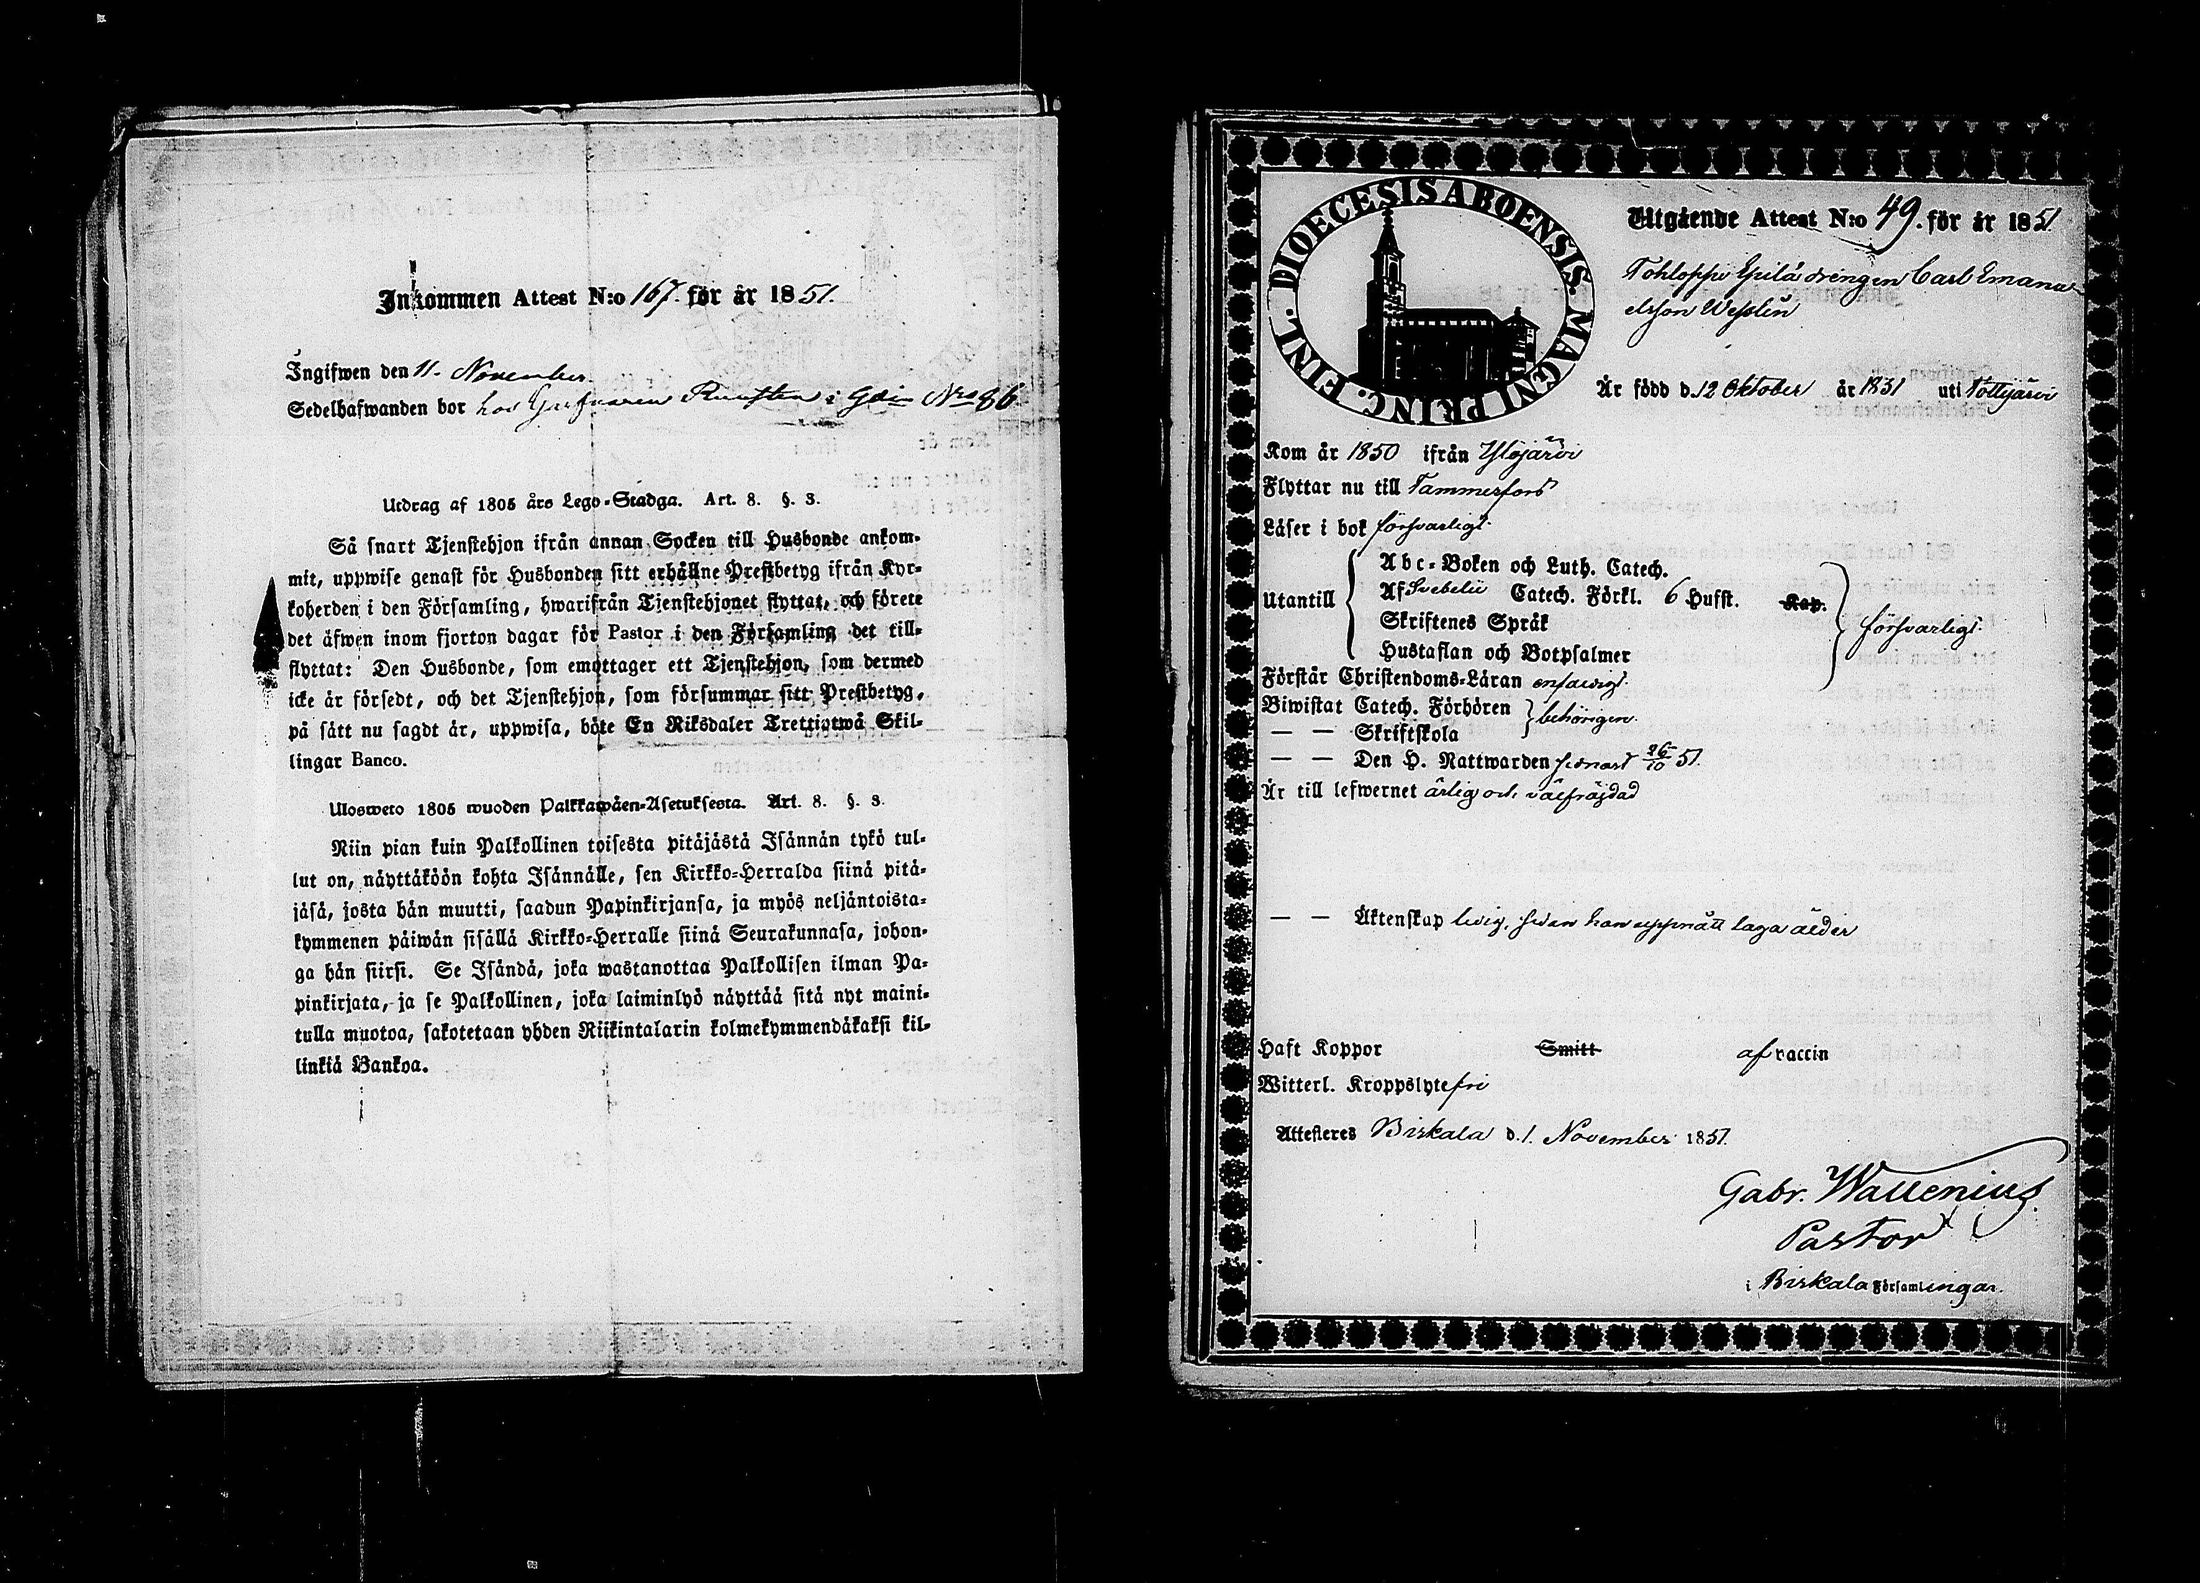 Inkommen Attest N:o 167. för år 1851.
Ingifwen den 11. November.
Sedelhafwanden bor hos i Gdn Nro 86.
Utdrag af 1805 års Lego-Stadga. Art. 8. §. 3.
Så snart Tjenstehjon ifrån annan Socken till Husbonde ankom-
mit, uppwise genast för Husbonden sitt erhållne Prestbetyg ifrån Kyr-
koherden i den Församling, hwarifrån Tjenstehjonet flyttat, och förete
det äfwen inom fjorton dagar för Pastor i den Församling det till-
flyttat: Den Husbonde, som emottager ett Tjenstehjon, som dermed
icke är försedt, och det Tjenstehjon, som försummar sitt Prestbetyg,
på sätt nu sagdt är, uppwisa, böte En Riksdaler Trettiotwå Skil-
lingar Banco.
Ulosweto 1805 wuoden Palkkawäen-Asetuksesta. Art. 8. §. 3.
Niin pian kuin Palkollinen toisesta pitäjästä Isännän tykö tul-
lut on, näyttäköön kohta Isännälle, sen Kirkko-Herralda siinä pitä-
jäsä, josta hän muutti, saadun Papinkirjansa, ja myös neljäntoista-
kymmenen päiwän sisällä Kirkko-Herralle siinä Seurakunnasa, johon-
ga hän siirsi. Se Isändä, joka wastanottaa Palkollisen ilman Pa-
pinkirjata, ja se Palkollinen, joka laiminlyö näyttää sitä nyt maini-
tulla muotoa, sakotetaan yhden Riikintalarin kolmekymmendäkaksi kil-
linkiä Bankoa.
DIOECESIS ABOENSIS. MAGNI PRINC. FINL.
Utgående Attest N:o 49. för år 1851
Tohloppi Ypilä drengen Carl Emanu-
elsson Wesslin
Är född d. 12 Oktober år 1831 uti Tottijärvi
Kom år 1850 ifrån Ylöjärvi
Flyttar nu till Tammerfors
Läser i bok försvarligt.
Utantill
Abc-Boken och Luth. Catech.
Af Svebelii Catech. Förkl. 6 Hufst. Kap.
Skriftenes Språk
Hustaflan och Botpsalmer
försvarligt.
Förstår Christendoms-Läran enfaldigt.
Biwistat Catech. Förhören
— — Skriftskola
behörigen.
— — Den H. Nattwarden sednast 26/10 51.
Är till lefwernet ärlig och välfräjdad
— — Äktenskap ledig, sedan han uppnått laga ålder
Haft Koppor Smitt af vaccin
Witterl. Kroppslyte fri
Attesteres Birkala d. 1. November 1851.
Gabr. Wallenius.
Pastor
i Birkala Församlingar.